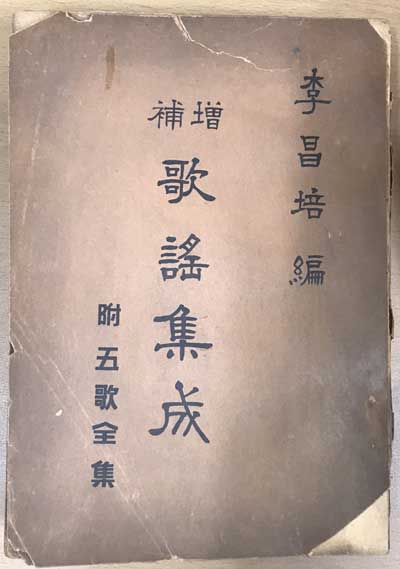 李昌培編
增補
歌謠集成
附五歌全集